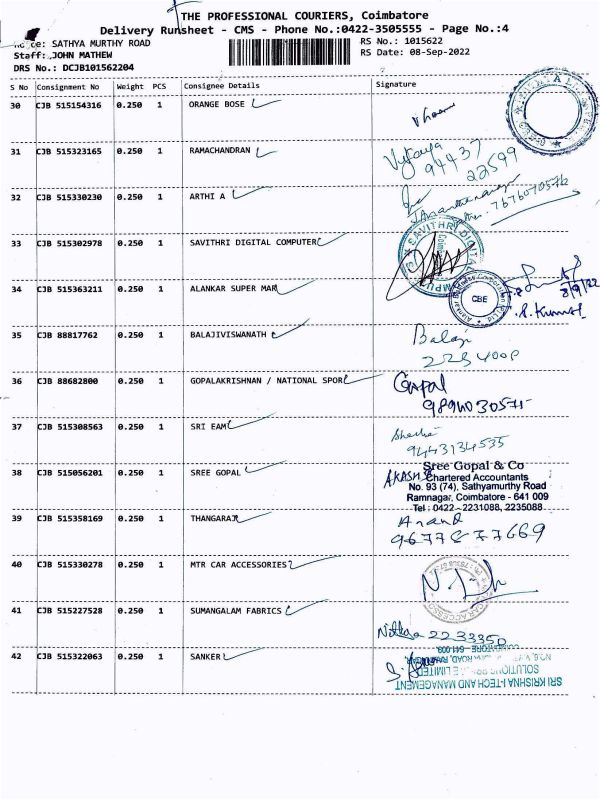 THE PROFESSIONAL COURIERS, Coimbatore
Delivery Runsheet - CMS - Phone No.:0422-3505555 - Page No.:4
SATHYA MURTHY ROAD
RS No.: 1015622
Staff: JOHN MATHEW
RS Date: 08-Sep-2022
DRS No.: DCJB101562204
S No Consignment No Weight PCS Consignee Details Signature
30 CJB 515154316 0.250 1 ORANGE BOSE
31 CJB 515323165 0.250 1 RAMACHANDRAN
94437
22599
32 CJB 515330230 0.250 1 ARTHI A
7676070576
33 CJB 515302978 0.250 1 SAVITHRI DIGITAL COMPUTER
SAVITHRI DIGITAL
34 CJB 515363211 0.250 1 ALANKAR SUPER MAR
CBE
8/9/22
S. Kumar
35 CJB 88817762 0.250 1 BALAJIVISWANATH
Balaji
36 CJB 88682800 0.250 1 GOPALAKRISHNAN / NATIONAL SPOR
Gopal
37 CJB 515308563 0.250 1 SRI EAM
9443134535
38 CJB 515056201 0.250 1 SREE GOPAL
AKASH
Sree Gopal & Co
Chartered Accountants
No. 93 (74), Sathyamurthy Road
Ramnagar, Coimbatore - 641 009
Tel : 0422 - 2231088, 2235088
39 CJB 515358169 0.250 1 THANGARAJ
Anand
9677877669
40 CJB 515330278 0.250 1 MTR CAR ACCESSORIES
41 CJB 515227528 0.250 1 SUMANGALAM FABRICS
2233350
42 CJB 515322063 0.250 1 SANKER
SRI KRISHNA I-TECH AND MANAGEMENT
SOLUTIONS